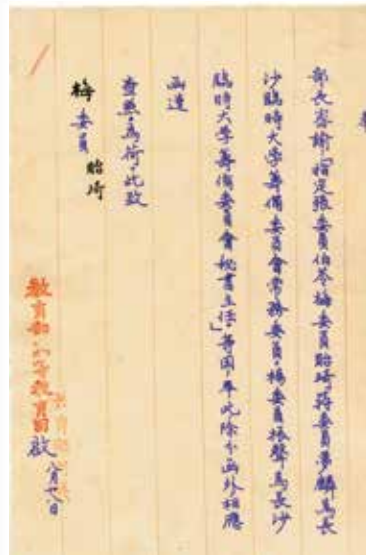 奉
部長密諭「指定張委員伯苓梅委員貽琦蔣委員夢麟為長
沙臨時大學籌備委員會常務委員，楊委員振聲為長沙
臨時大學籌備委員會秘書主任」等因，奉此除分函外相應
函達
查照為荷，此致
梅委員貽琦
教育部高等教育司啟
八月廿八日